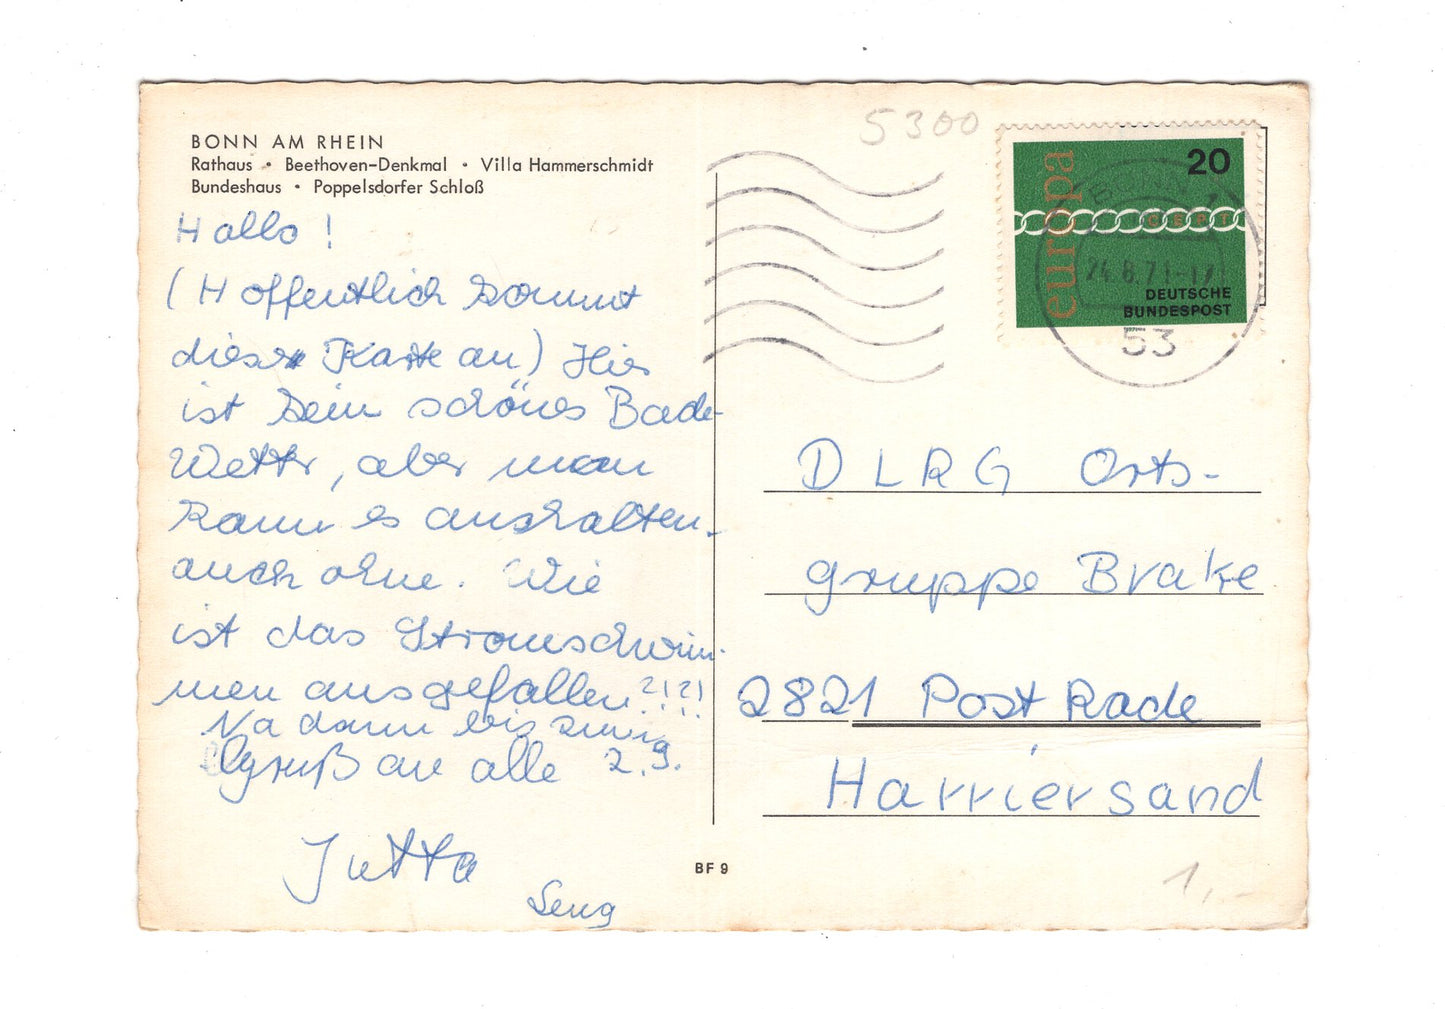 BONN AM RHEIN
Rathaus • Beethoven-Denkmal • Villa Hammerschmidt
Bundeshaus • Poppelsdorfer Schloß
Hallo !
(Hoffentlich kommt
diese Karte an) Hier
ist kein schönes Bade-
Wetter, aber man
kann es aushalten.
auch ohne. Wie
ist das Stromschwim-
men ausgefallen ?!?!
Na dann bis zum
Gruß an alle 2.9.
Jutta
BF 9
5300
20
europa
CEPT
24.8.71-17
DEUTSCHE
BUNDESPOST
53
DLRG Orts-
gruppe Brake
2821 Post Rade
Harriersand
1,-